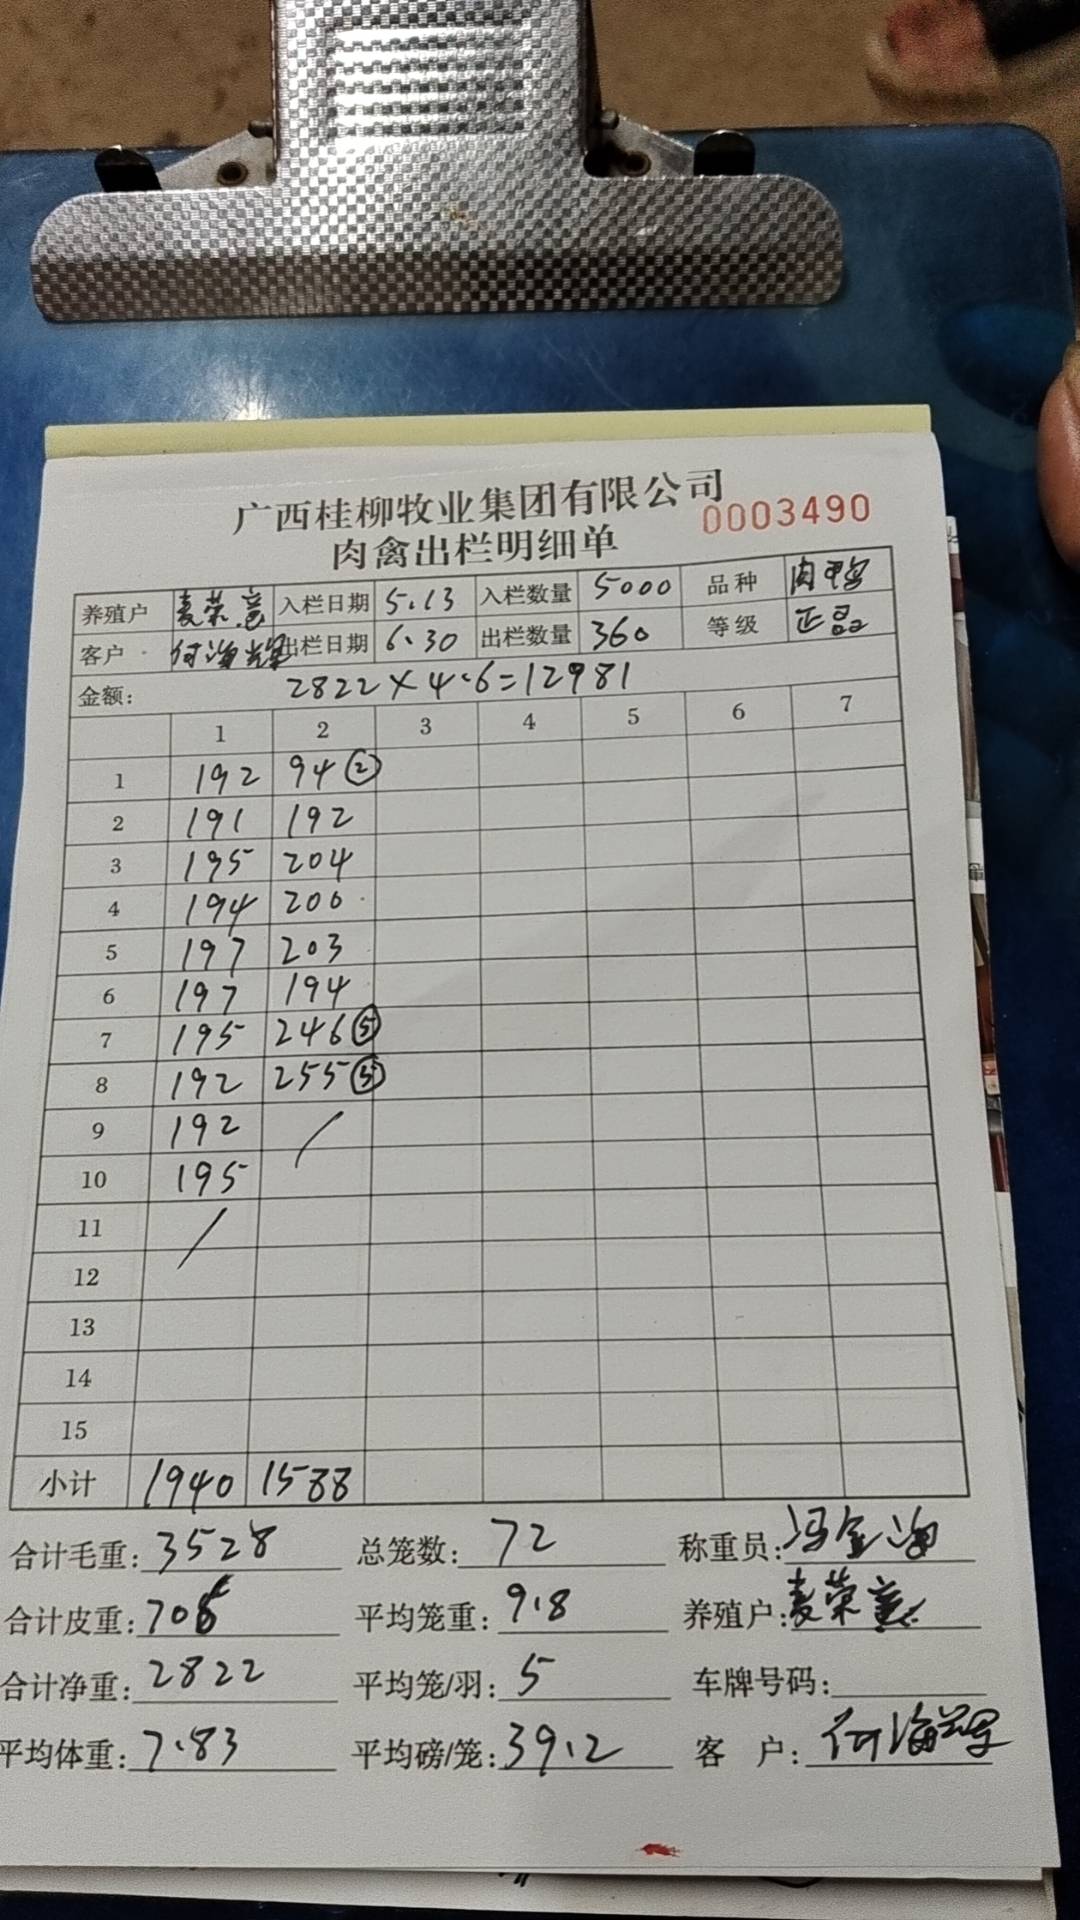 广西桂柳牧业集团有限公司
肉禽出栏明细单 0003490
养殖户 麦荣 入栏日期 5.13 入栏数量 5000 品种 肉鸭
客户 何海辉 出栏日期 6.30 出栏数量 360 等级 正品
金额: 2822×4.6=12981
1 2 3 4 5 6 7
1 192 94②
2 191 192
3 195 204
4 194 200
5 197 203
6 197 194
7 195 246⑤
8 192 255⑤
9 192 /
10 195
11 /
12
13
14
15
小计 1940 1588
合计毛重: 3528 总笼数: 72 称重员: 冯金海
合计皮重: 706 平均笼重: 9.8 养殖户: 麦荣
合计净重: 2822 平均笼/羽: 5 车牌号码:
平均体重: 7.83 平均磅/笼: 39.2 客户: 何海辉